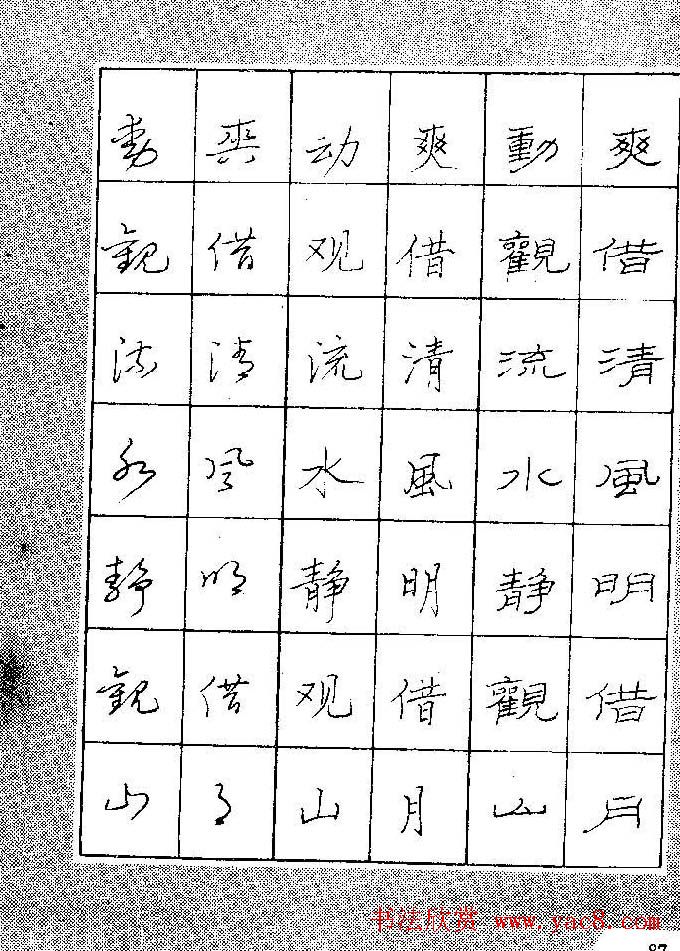 爽借清風明借月
動觀流水静觀山
爽借清風明借月
动观流水静观山
爽借清风明借月
動觀流水静觀山
书法欣赏 www.yac8.com
87